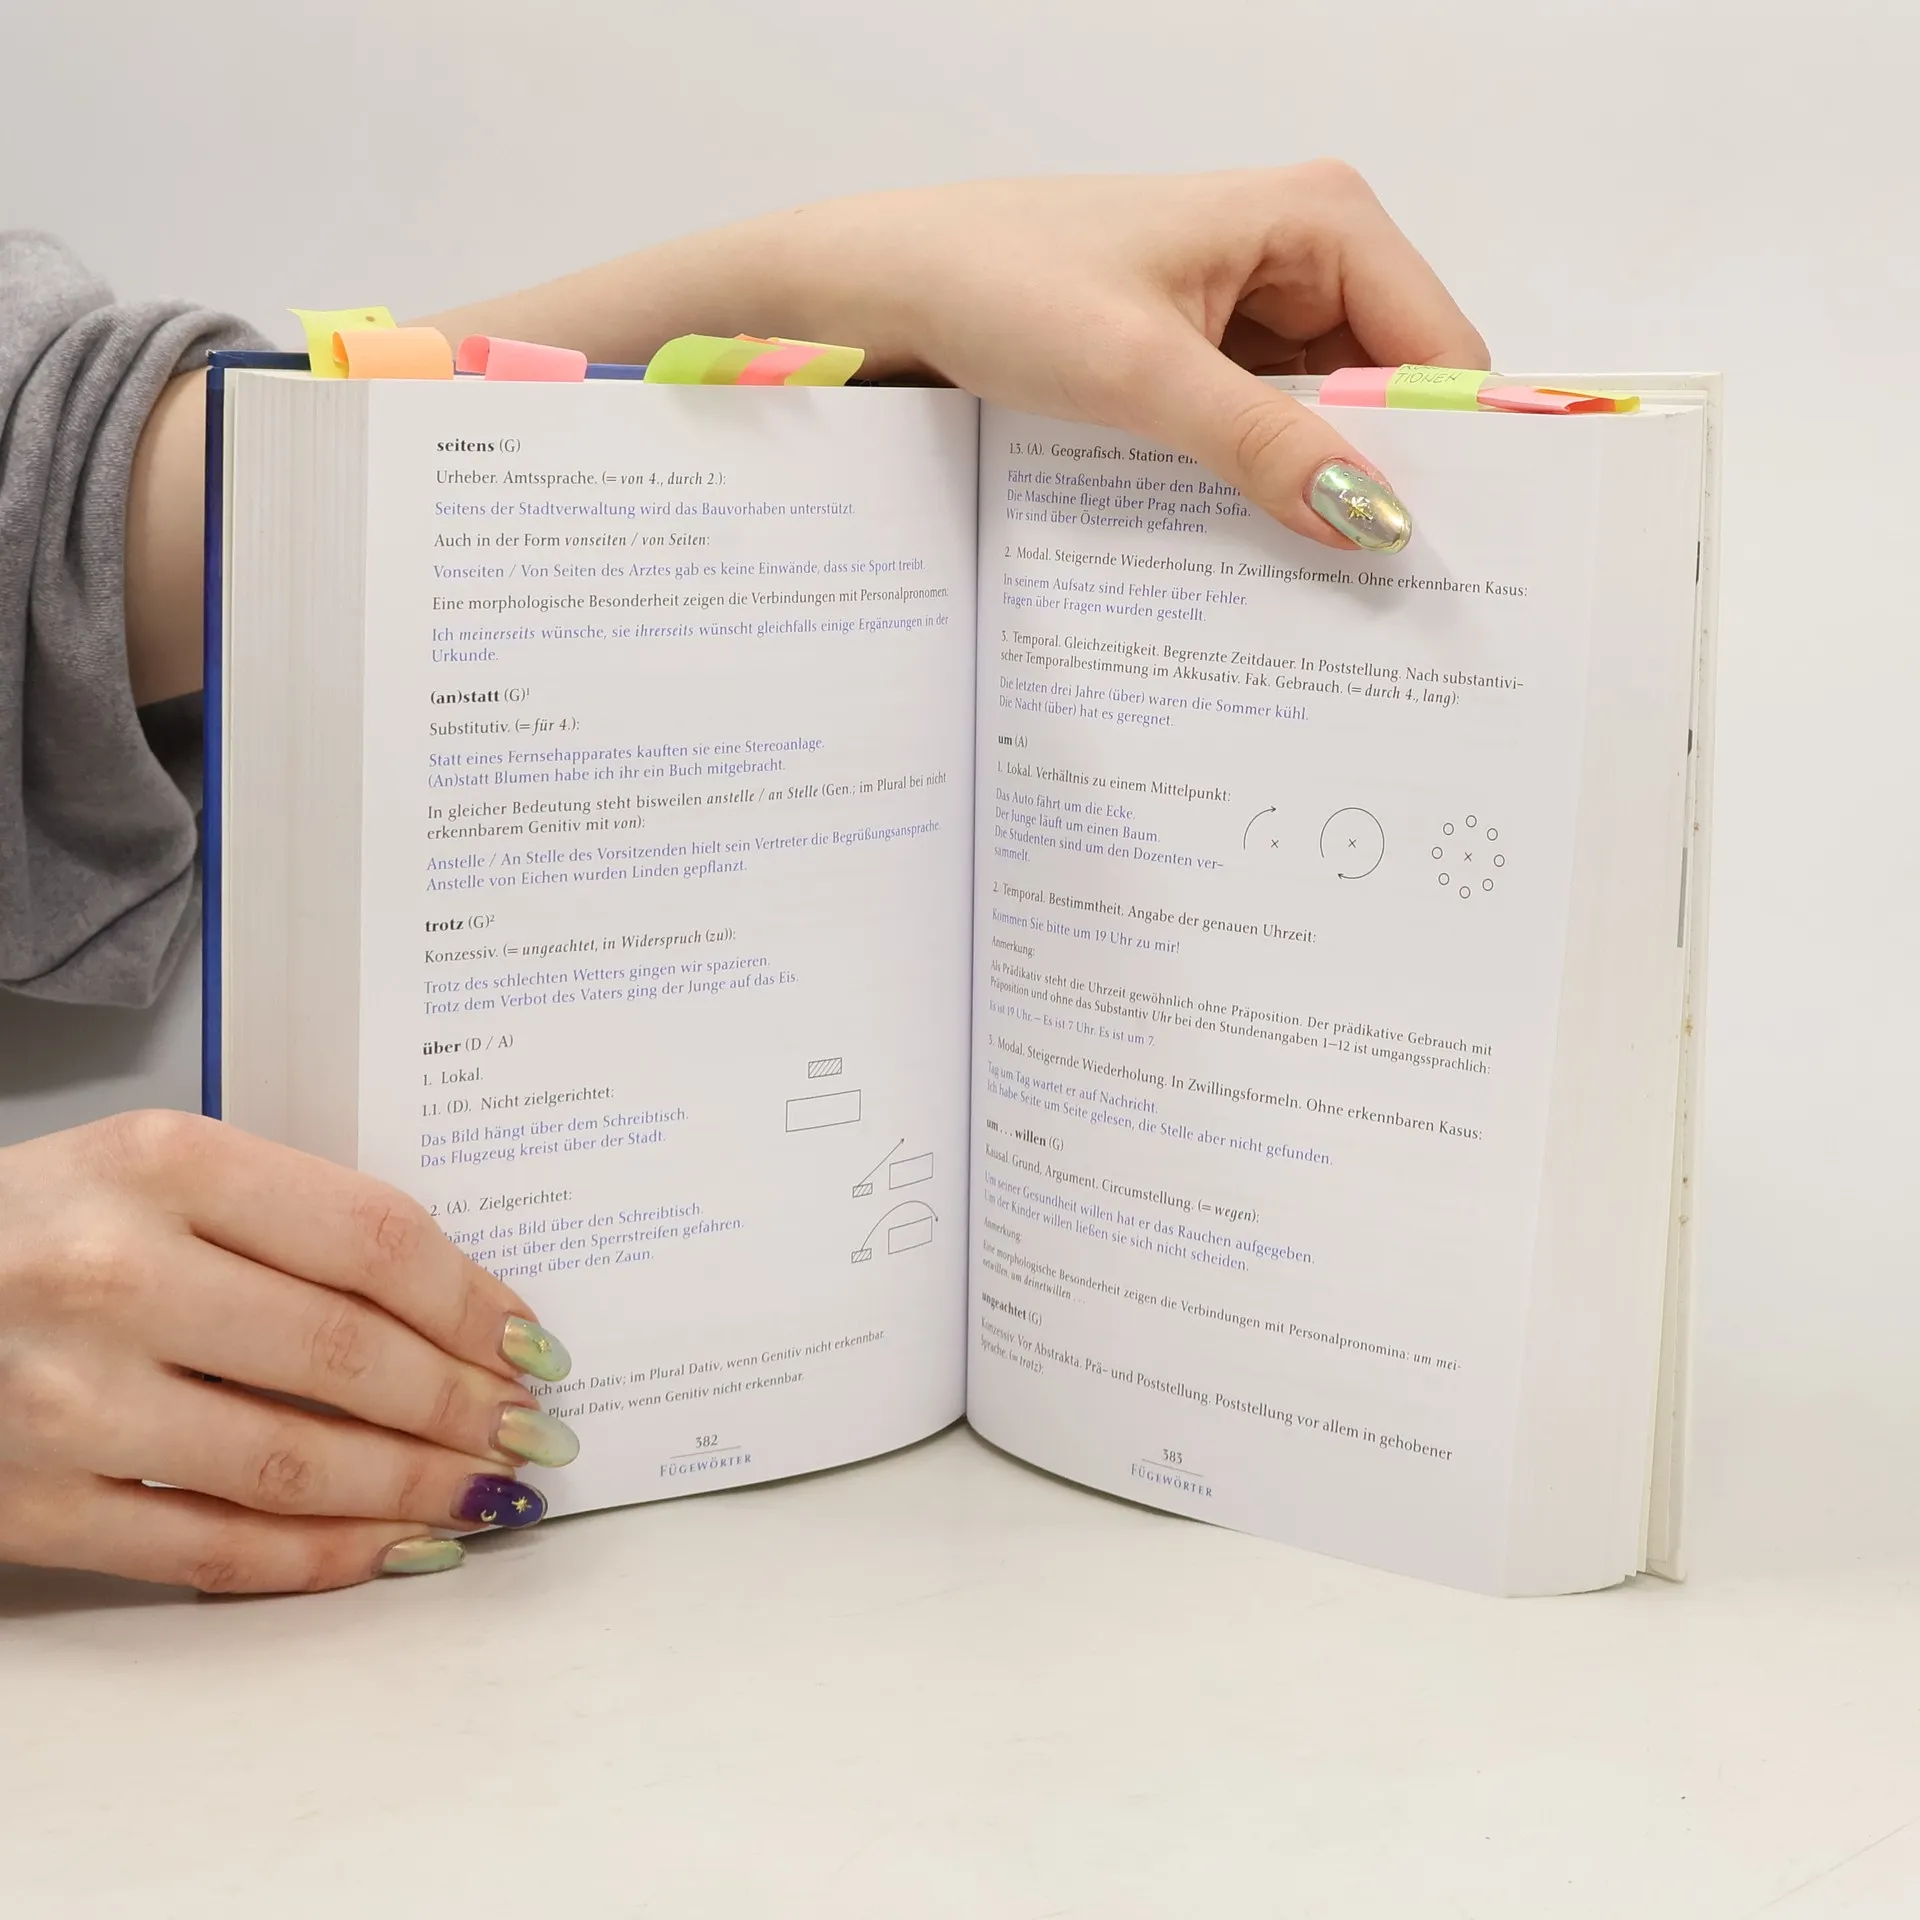 seitens (G)
Urheber. Amtssprache. (= von 4., durch 2.):
Seitens der Stadtverwaltung wird das Bauvorhaben unterstützt.
Auch in der Form vonseiten / von Seiten:
Vonseiten / Von Seiten des Arztes gab es keine Einwände, dass sie Sport treibt.
Eine morphologische Besonderheit zeigen die Verbindungen mit Personalpronomen:
Ich meinerseits wünsche, sie ihrerseits wünscht gleichfalls einige Ergänzungen in der
Urkunde.
(an)statt (G)¹
Substitutiv. (= für 4.):
Statt eines Fernsehapparates kauften sie eine Stereoanlage.
(An)statt Blumen habe ich ihr ein Buch mitgebracht.
In gleicher Bedeutung steht bisweilen anstelle / an Stelle (Gen.; im Plural bei nicht
erkennbarem Genitiv mit von):
Anstelle / An Stelle des Vorsitzenden hielt sein Vertreter die Begrüßungsansprache.
Anstelle von Eichen wurden Linden gepflanzt.
trotz (G)²
Konzessiv. (= ungeachtet, in Widerspruch (zu)):
Trotz des schlechten Wetters gingen wir spazieren.
Trotz dem Verbot des Vaters ging der Junge auf das Eis.
über (D / A)
1. Lokal.
1.1. (D). Nicht zielgerichtet:
Das Bild hängt über dem Schreibtisch.
Das Flugzeug kreist über der Stadt.
2. (A). Zielgerichtet:
hängt das Bild über den Schreibtisch.
ist über den Sperrstreifen gefahren.
springt über den Zaun.
auch Dativ; im Plural Dativ, wenn Genitiv nicht erkennbar.
Plural Dativ, wenn Genitiv nicht erkennbar.
382
FÜGEWÖRTER
TIONEN
1.3. (A). Geografisch. Station
Fährt die Straßenbahn über den
Die Maschine fliegt über Prag nach Sofia.
Wir sind über Österreich gefahren.
2. Modal. Steigernde Wiederholung. In Zwillingsformeln. Ohne erkennbaren Kasus:
In seinem Aufsatz sind Fehler über Fehler.
Fragen über Fragen wurden gestellt.
3. Temporal. Gleichzeitigkeit. Begrenzte Zeitdauer. In Poststellung. Nach substantivi-
scher Temporalbestimmung im Akkusativ. Fak. Gebrauch. (= durch 4., lang):
Die letzten drei Jahre (über) waren die Sommer kühl.
Die Nacht (über) hat es geregnet.
um (A)
1. Lokal. Verhältnis zu einem Mittelpunkt:
Das Auto fährt um die Ecke.
Der Junge läuft um einen Baum.
Die Studenten sind um den Dozenten ver-
sammelt.
2. Temporal. Bestimmtheit. Angabe der genauen Uhrzeit:
Kommen Sie bitte um 19 Uhr zu mir!
Anmerkung:
Als Prädikativ steht die Uhrzeit gewöhnlich ohne Präposition. Der prädikative Gebrauch mit
Präposition und ohne das Substantiv Uhr bei den Stundenangaben 1–12 ist umgangssprachlich:
Es ist 19 Uhr. – Es ist 7 Uhr. Es ist um 7.
3. Modal. Steigernde Wiederholung. In Zwillingsformeln. Ohne erkennbaren Kasus:
Tag um Tag wartet er auf Nachricht.
Ich habe Seite um Seite gelesen, die Stelle aber nicht gefunden.
um ... willen (G)
Kausal. Grund, Argument. Circumstellung. (= wegen):
Um seiner Gesundheit willen hat er das Rauchen aufgegeben.
Um der Kinder willen ließen sie sich nicht scheiden.
Anmerkung:
Eine morphologische Besonderheit zeigen die Verbindungen mit Personalpronomina: um mei-
netwillen, um deinetwillen ...
ungeachtet (G)
Konzessiv. Vor Abstrakta. Prä- und Poststellung. Poststellung vor allem in gehobener
Sprache. (= trotz):
383
FÜGEWÖRTER